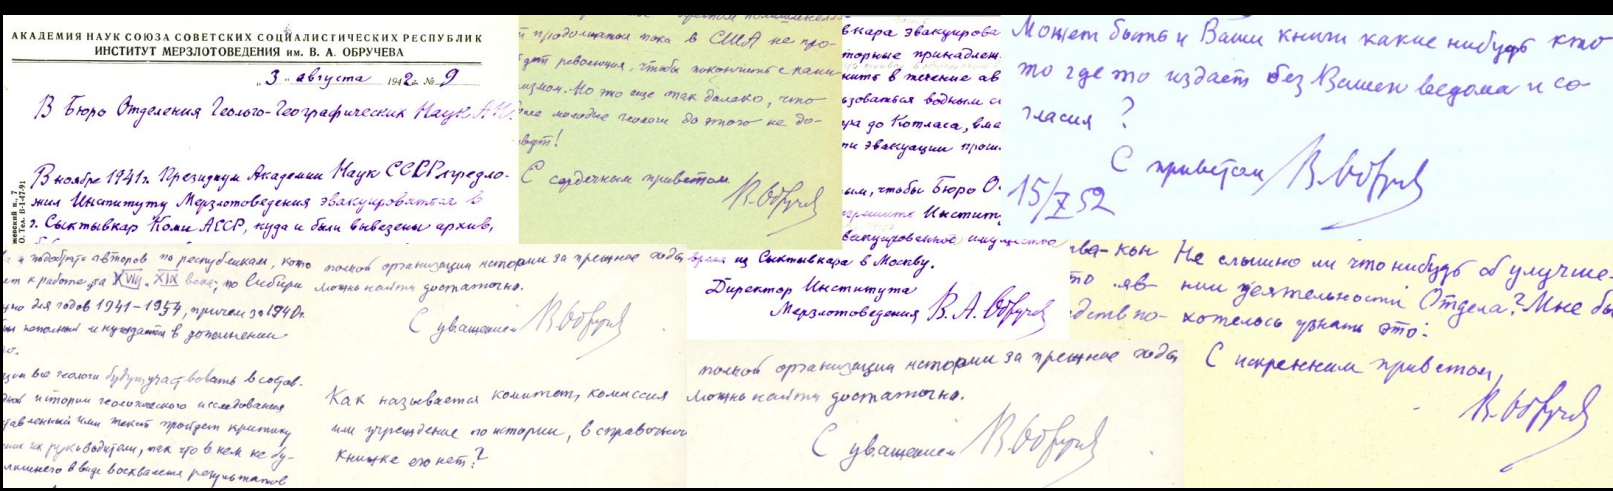 АКАДЕМИЯ НАУК СОЮЗА СОВЕТСКИХ СОЦИАЛИСТИЧЕСКИХ РЕСПУБЛИК
ИНСТИТУТ МЕРЗЛОТОВЕДЕНИЯ им. В. А. ОБРУЧЕВА
„3" августа 1942 г. № 9
В Бюро Отделения Геолого-Географических Наук АН.
В ноябре 1941 г. Президиум Академии Наук СССР предло-
жил Институту Мерзлотоведения эвакуироваться в
г. Сыктывкар Коми АССР, куда и были вывезены архив,
О. Тел. В-1-17-91
продолжаться пока в США не про-
дет революция, чтобы покончить с
Но это еще так далеко, что
молодые геологи до этого не до-
вут!
С сердечным приветом
В. Обручев
вкара эвакуирова
торые принадлеж
нить в течение ав
зоваться водным с
ра до Котласа, вме
ти эвакуации прош
ым, чтобы Бюро О
Инстит
эвакуированное имущество
из Сыктывкара в Москву.
Директор Института
Мерзлотоведения В. А. Обручев
Может быть и Ваши книги какие нибудь кто
то где то издает без Вашего ведома и со
гласия?
С приветом В. Обручев
15/X 52
и подобрать авторов по республикам,
к работе за XVIII, XIX века; по Сибири
для годов 1941-1954, причем за 1940 г.
неполной и нуждается в дополнении
все геологи будут участвовать в состав-
истории геологического исследования
или текст пройдет критику
их руководители, так что в нем не бу-
лишнего в виде восхваления результатов
полной организации истории за прежние годы
можно найти достаточно.
С уважением В. Обручев
Как называется комитет, комиссия
или учреждение по истории, в справочной
книжке его нет?
полной организации истории за прежние годы
можно найти достаточно.
С уважением В. Обручев
Не слышно ли что нибудь об улучше-
нии деятельности Отдела? Мне бы
хотелось узнать это.
С искренним приветом,
В. Обручев